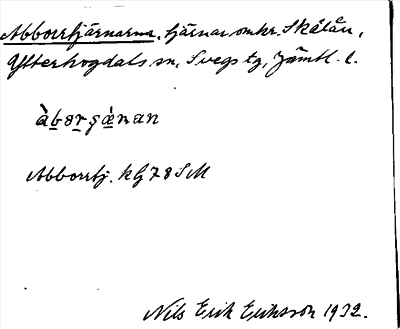 Abborrtjärnarna, tjärnar omkr. Skålån,
Ytterhogdals sn, Svegs tg, Jämtl. l.
àbo̱rşæ̀nan
Abborrtj. kG78SM
Nils Erik Eriksson 1932.